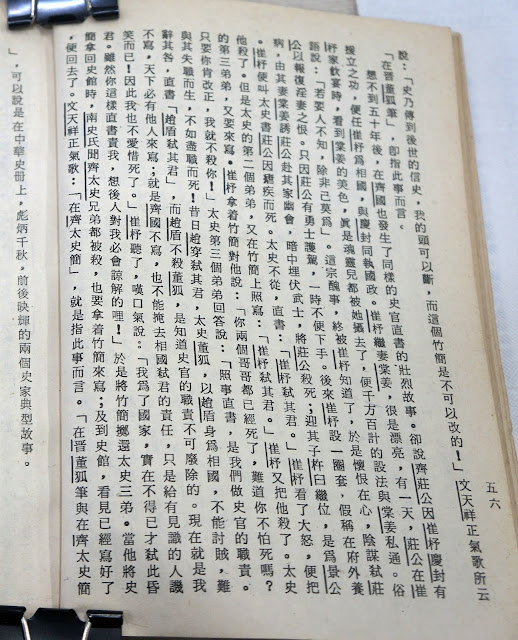 五六
說：「史乃傳到後世的信史，我的頭可以斷，而這個竹簡是不可以改的！」文天祥正氣歌所云
「在晉董狐筆」，卽指此事而言。
想不到五十年後，在齊國也發生了同樣的史官直書的壯烈故事。卻說齊莊公因崔杼慶封有
援立之功，便任崔杼爲相國，與慶封同執國政。崔杼繼妻棠姜，很是漂亮，有一天，莊公在崔
杼家飲宴時，看到棠姜的美色，眞是魂靈兒都被她攝去了，便千方百計的設法與棠姜私通。俗
語說：「若要人不知，除非己莫爲」。這宗醜事，終被崔杼知道了，於是懷恨在心，陰謀弒莊
公以報復淫妻之恨。只因莊公有勇士護駕，一時不便下手。後來崔杼設一圈套，假稱在府外養
病，由其妻棠姜誘莊公赴其家幽會，暗中埋伏武士，將莊公殺死；迎其子杵臼繼位，是爲景公
。崔杼便叫太史書莊公因瘧疾而死。太史不從，直書：「崔杼弒其君。」崔杼看了大怒，便把
他殺了。但是太史的第二個弟弟，又在竹簡上照寫：「崔杼弒其君。」崔杼又把他殺了。太史
的第三弟弟，又要來寫。崔杼拿着竹簡對他說：「你兩個哥哥都已經死了，難道你不怕死嗎？
只要你肯改正，我就不殺你！」太史第三個弟弟回答說：「照事直書，是我們做史官的職責。
與其失職而生，不如盡職而死！昔日趙穿弒其君，太史董狐，以趙盾身爲相國，不能討賊，難
辭其咎，直書「趙盾弒其君」，而趙盾不殺董狐，是知道史官的職責不可廢除的。現在就是我
不寫，天下必有他人來寫；就是齊國不寫，也不能掩去相國弒君的責任，只是給有見識的人譏
笑而已！因此我也不愛惜死了。」崔杼聽了，嘆口氣說：「我爲了國家，實在不得已才弒此昏
君。雖然你這樣直書責我，想後人對我必會諒解的哩！」於是將竹簡擲還太史三弟。當他將史
簡拿回史館時，南史氏聞齊太史兄弟都被殺，也要拿着竹簡來寫；及到史館，看見已經寫好了
，便回去了。文天祥正氣歌：「在齊太史簡」，就是指此事而言。「在晉董狐筆與在齊太史簡
」，可以說是在中華史册上，彪炳千秋，前後映輝的兩個史家典型故事。